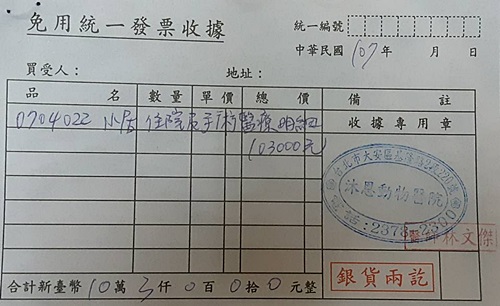 免用統一發票收據
統一編號
中華民國107年 月 日
買受人： 地址：
品名 數量 單價 總價 備註
0704022 小居 住院及手術醫療明細 收據專用章
103000元
台北市大安區
沐恩動物醫院
電話：2378-2300
醫師林文傑
銀貨兩訖
合計新臺幣10萬3仟0百0拾0元整